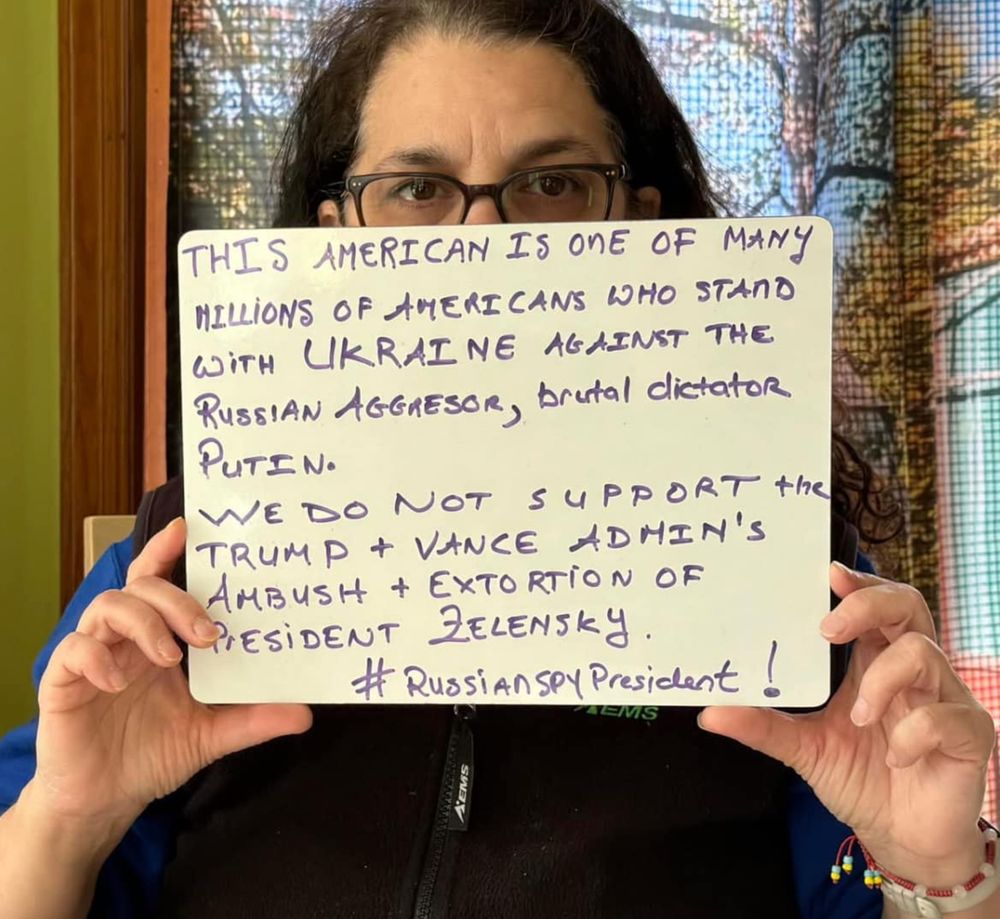 THIS AMERICAN IS ONE OF MANY
MILLIONS OF AMERICANS WHO STAND
WITH UKRAINE AGAINST THE
RUSSIAN AGGRESOR, brutal dictator
PUTIN.
WE DO NOT SUPPORT the
TRUMP + VANCE ADMIN'S
AMBUSH + EXTORTION OF
PRESIDENT ZELENSKY.
#RussianSpyPresident!
EMS
EMS